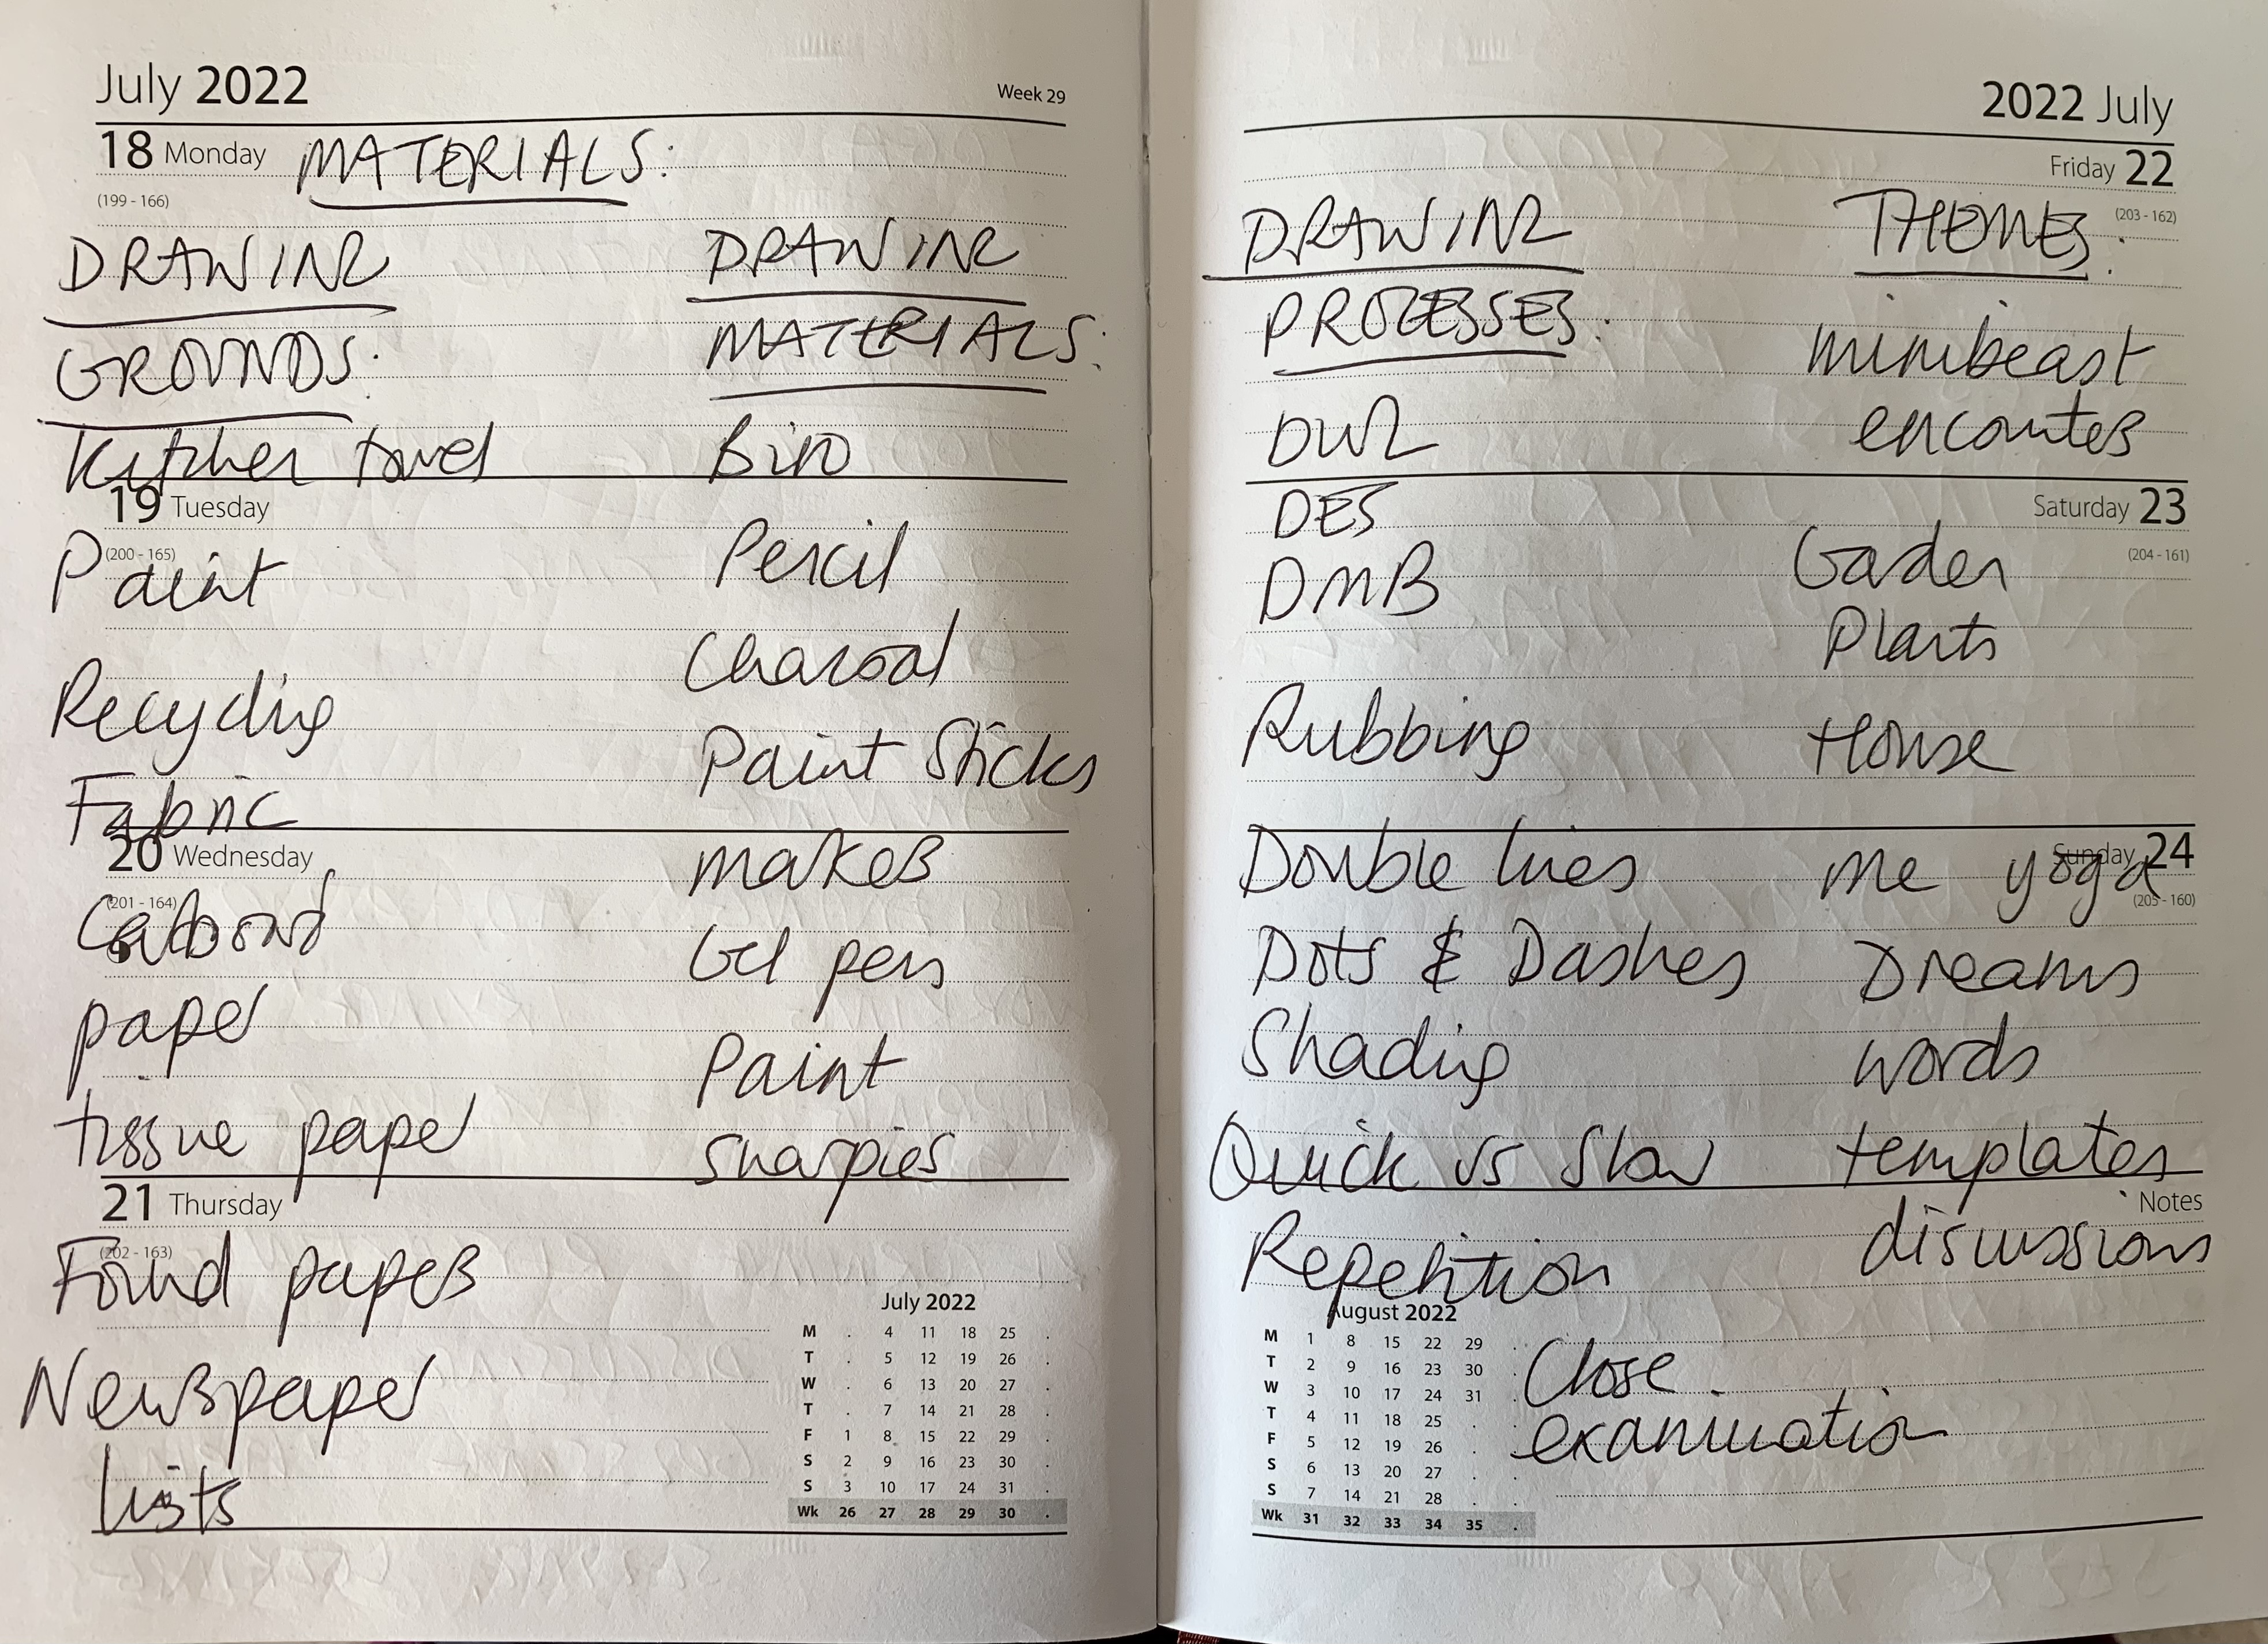 July 2022
Week 29
18 Monday
MATERIALS:
(199 - 166)
DRAWING
GROUNDS:
Kitchen towel
19 Tuesday
(200 - 165)
Paint
Recycling
Fabric
20 Wednesday
(201 - 164)
Carboard
paper
tissue paper
21 Thursday
(202 - 163)
Found papers
Newspaper
lists
DRAWING
MATERIALS:
Biro
Pencil
Charcoal
Paint Sticks
markers
Gel pens
Paint
Sharpies
July 2022
M . 4 11 18 25 .
T . 5 12 19 26 .
W . 6 13 20 27 .
T . 7 14 21 28 .
F 1 8 15 22 29 .
S 2 9 16 23 30 .
S 3 10 17 24 31 .
Wk 26 27 28 29 30 .
2022 July
Friday 22
(203 - 162)
DRAWING
PROCESSES:
DWL
DES
DMB
Rubbing
Double lines
Dots & Dashes
Shading
Quick vs Slow
Repetition
Close
examination
THEMES:
minibeast
encounters
Saturday 23
(204 - 161)
Garden
Plants
House
Sunday 24
(205 - 160)
me yoga
Dreams
words
templates
Notes
discussions
August 2022
M 1 8 15 22 29 .
T 2 9 16 23 30 .
W 3 10 17 24 31 .
T 4 11 18 25 . .
F 5 12 19 26 . .
S 6 13 20 27 . .
S 7 14 21 28 . .
Wk 31 32 33 34 35 .